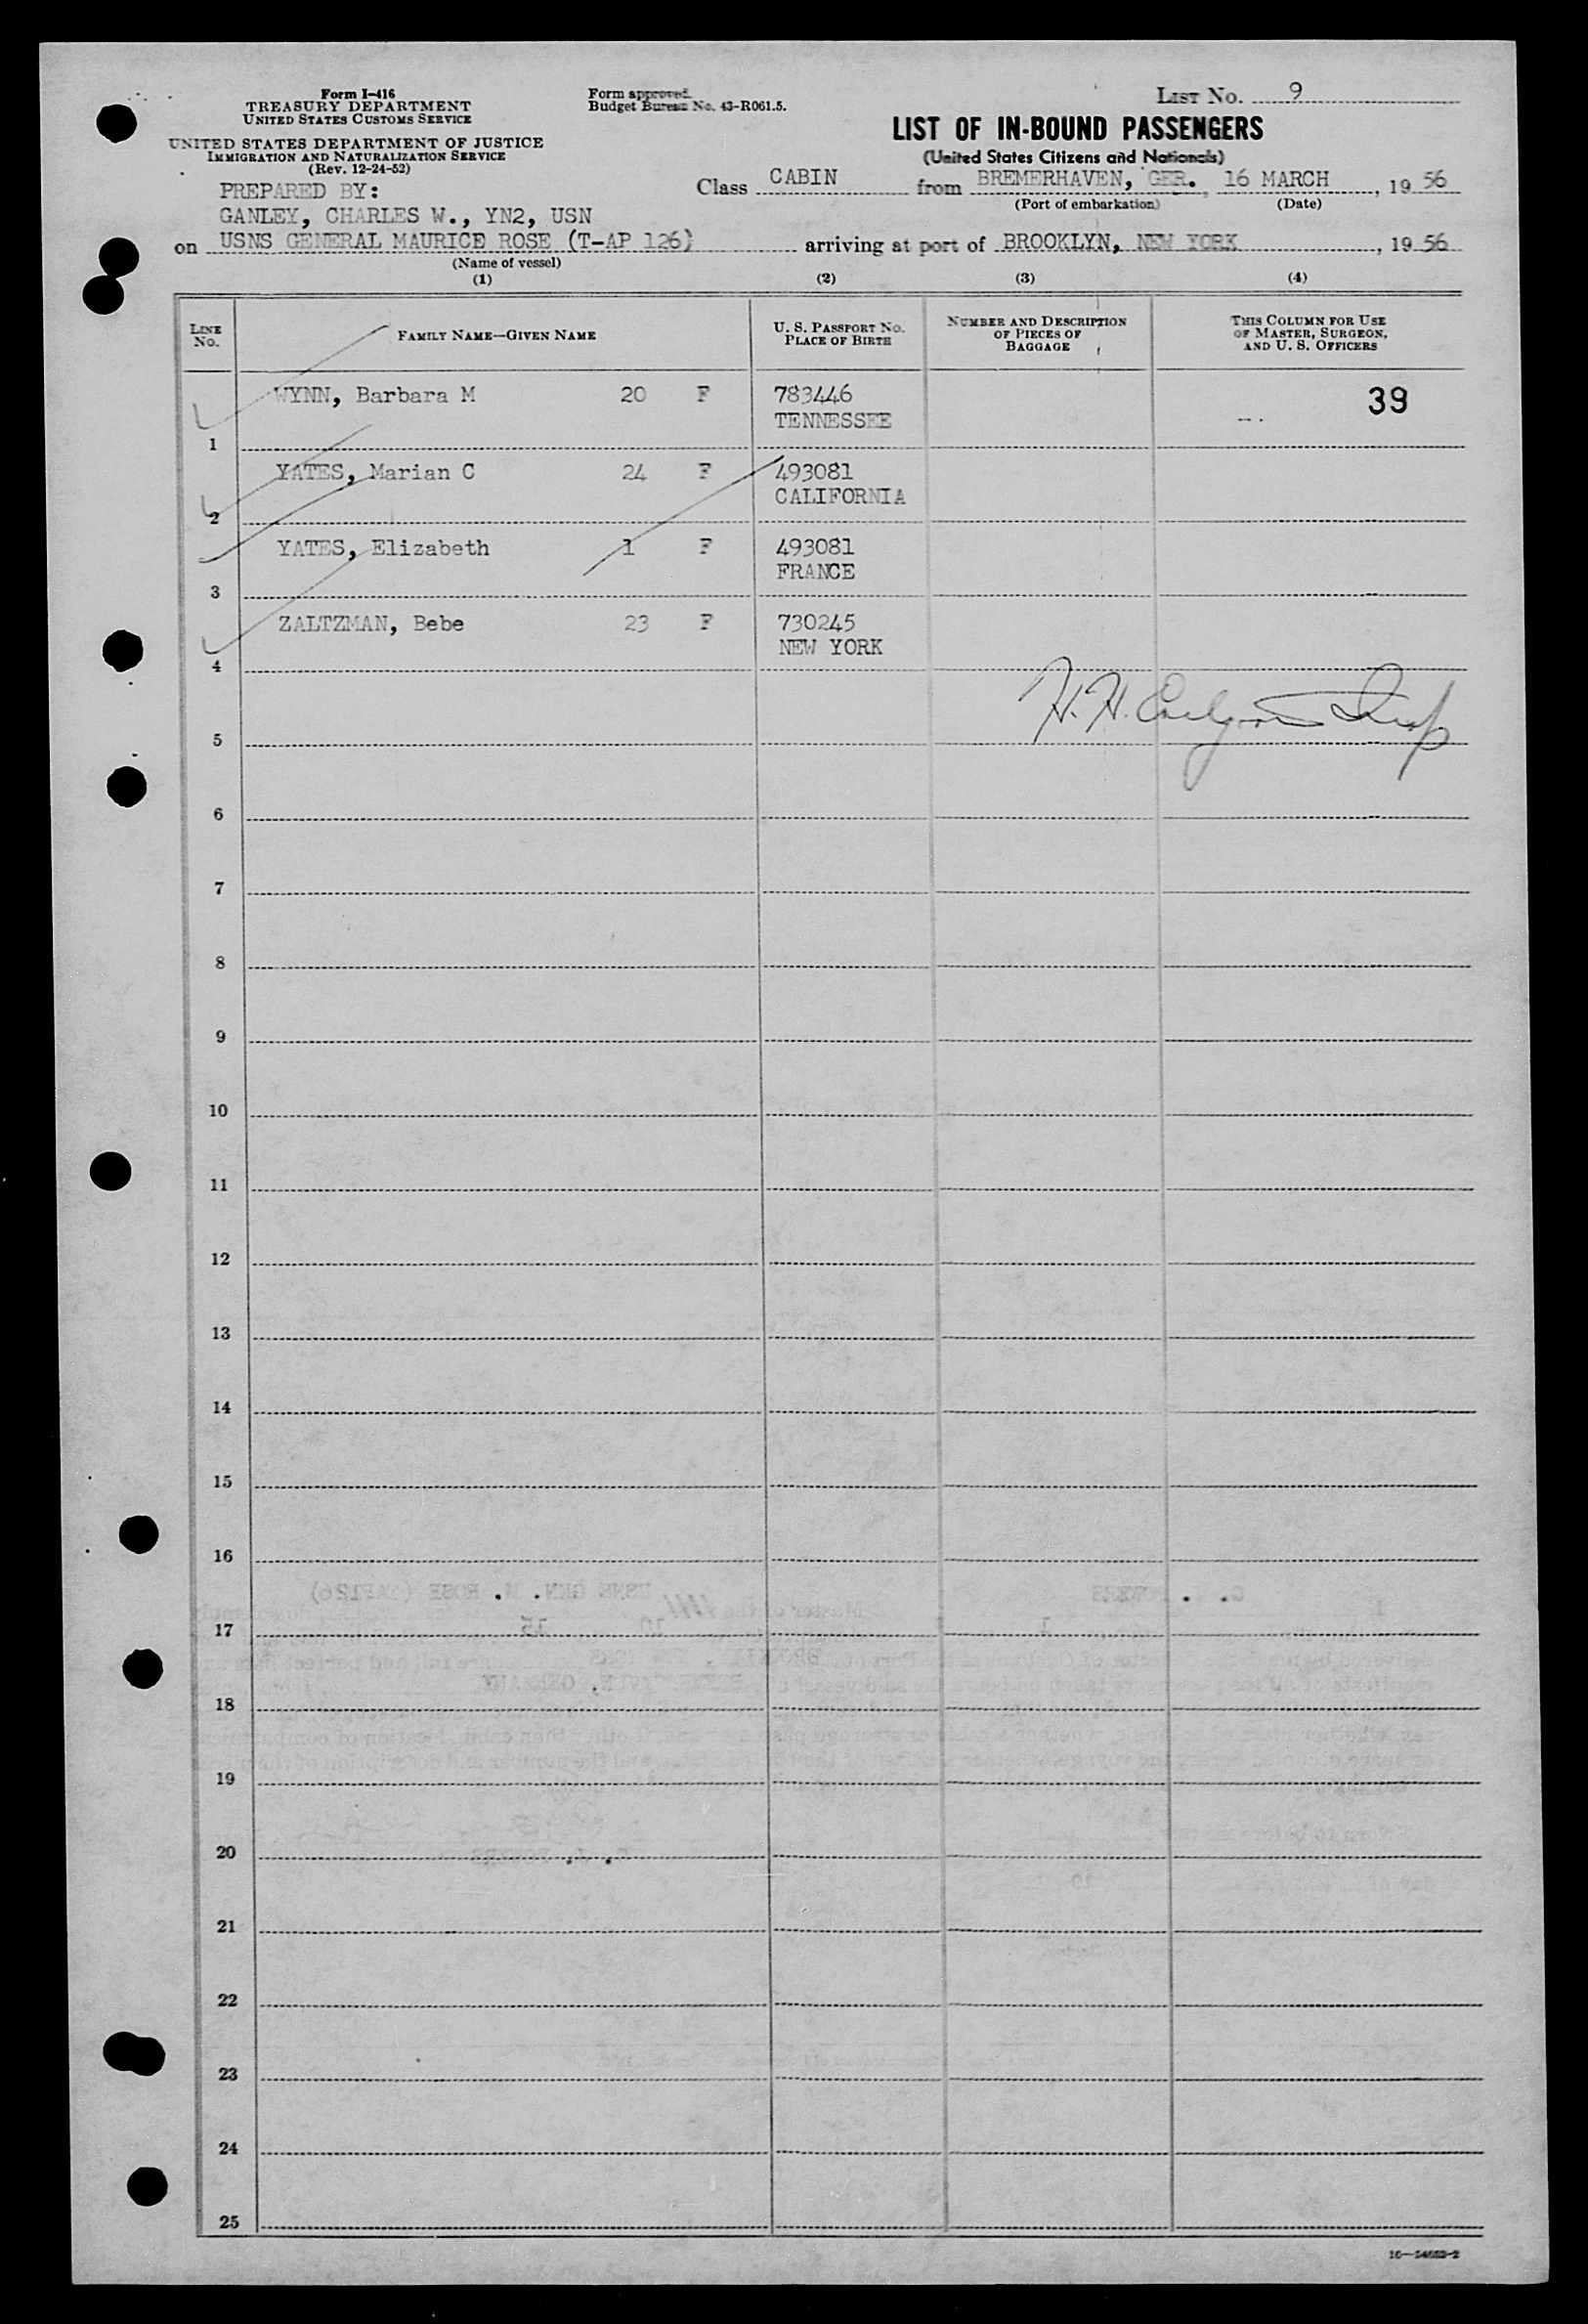 Form I-416
TREASURY DEPARTMENT
UNITED STATES CUSTOMS SERVICE
UNITED STATES DEPARTMENT OF JUSTICE
IMMIGRATION AND NATURALIZATION SERVICE
(Rev. 12-24-52)
Form approved.
Budget Bureau No. 43-R061.5.
LIST No. 9
LIST OF IN-BOUND PASSENGERS
(United States Citizens and Nationals)
PREPARED BY:
GANLEY, CHARLES W., YN2, USN
Class CABIN from BREMERHAVEN, GER., 16 MARCH, 19 56
(Port of embarkation) (Date)
on USNS GENERAL MAURICE ROSE (T-AP 126) arriving at port of BROOKLYN, NEW YORK, 19 56
(Name of vessel)
(1) (2) (3) (4)
LINE No. FAMILY NAME—GIVEN NAME U. S. PASSPORT NO. PLACE OF BIRTH NUMBER AND DESCRIPTION OF PIECES OF BAGGAGE THIS COLUMN FOR USE OF MASTER, SURGEON, AND U. S. OFFICERS
WYNN, Barbara M 20 F 783446 39
TENNESSEE
1
YATES, Marian C 24 F 493081
CALIFORNIA
2
YATES, Elizabeth 1 F 493081
FRANCE
3
ZALTZMAN, Bebe 23 F 730245
NEW YORK
4
H. H.
5
6
7
8
9
10
11
12
13
14
15
16
17
18
19
20
21
22
23
24
25